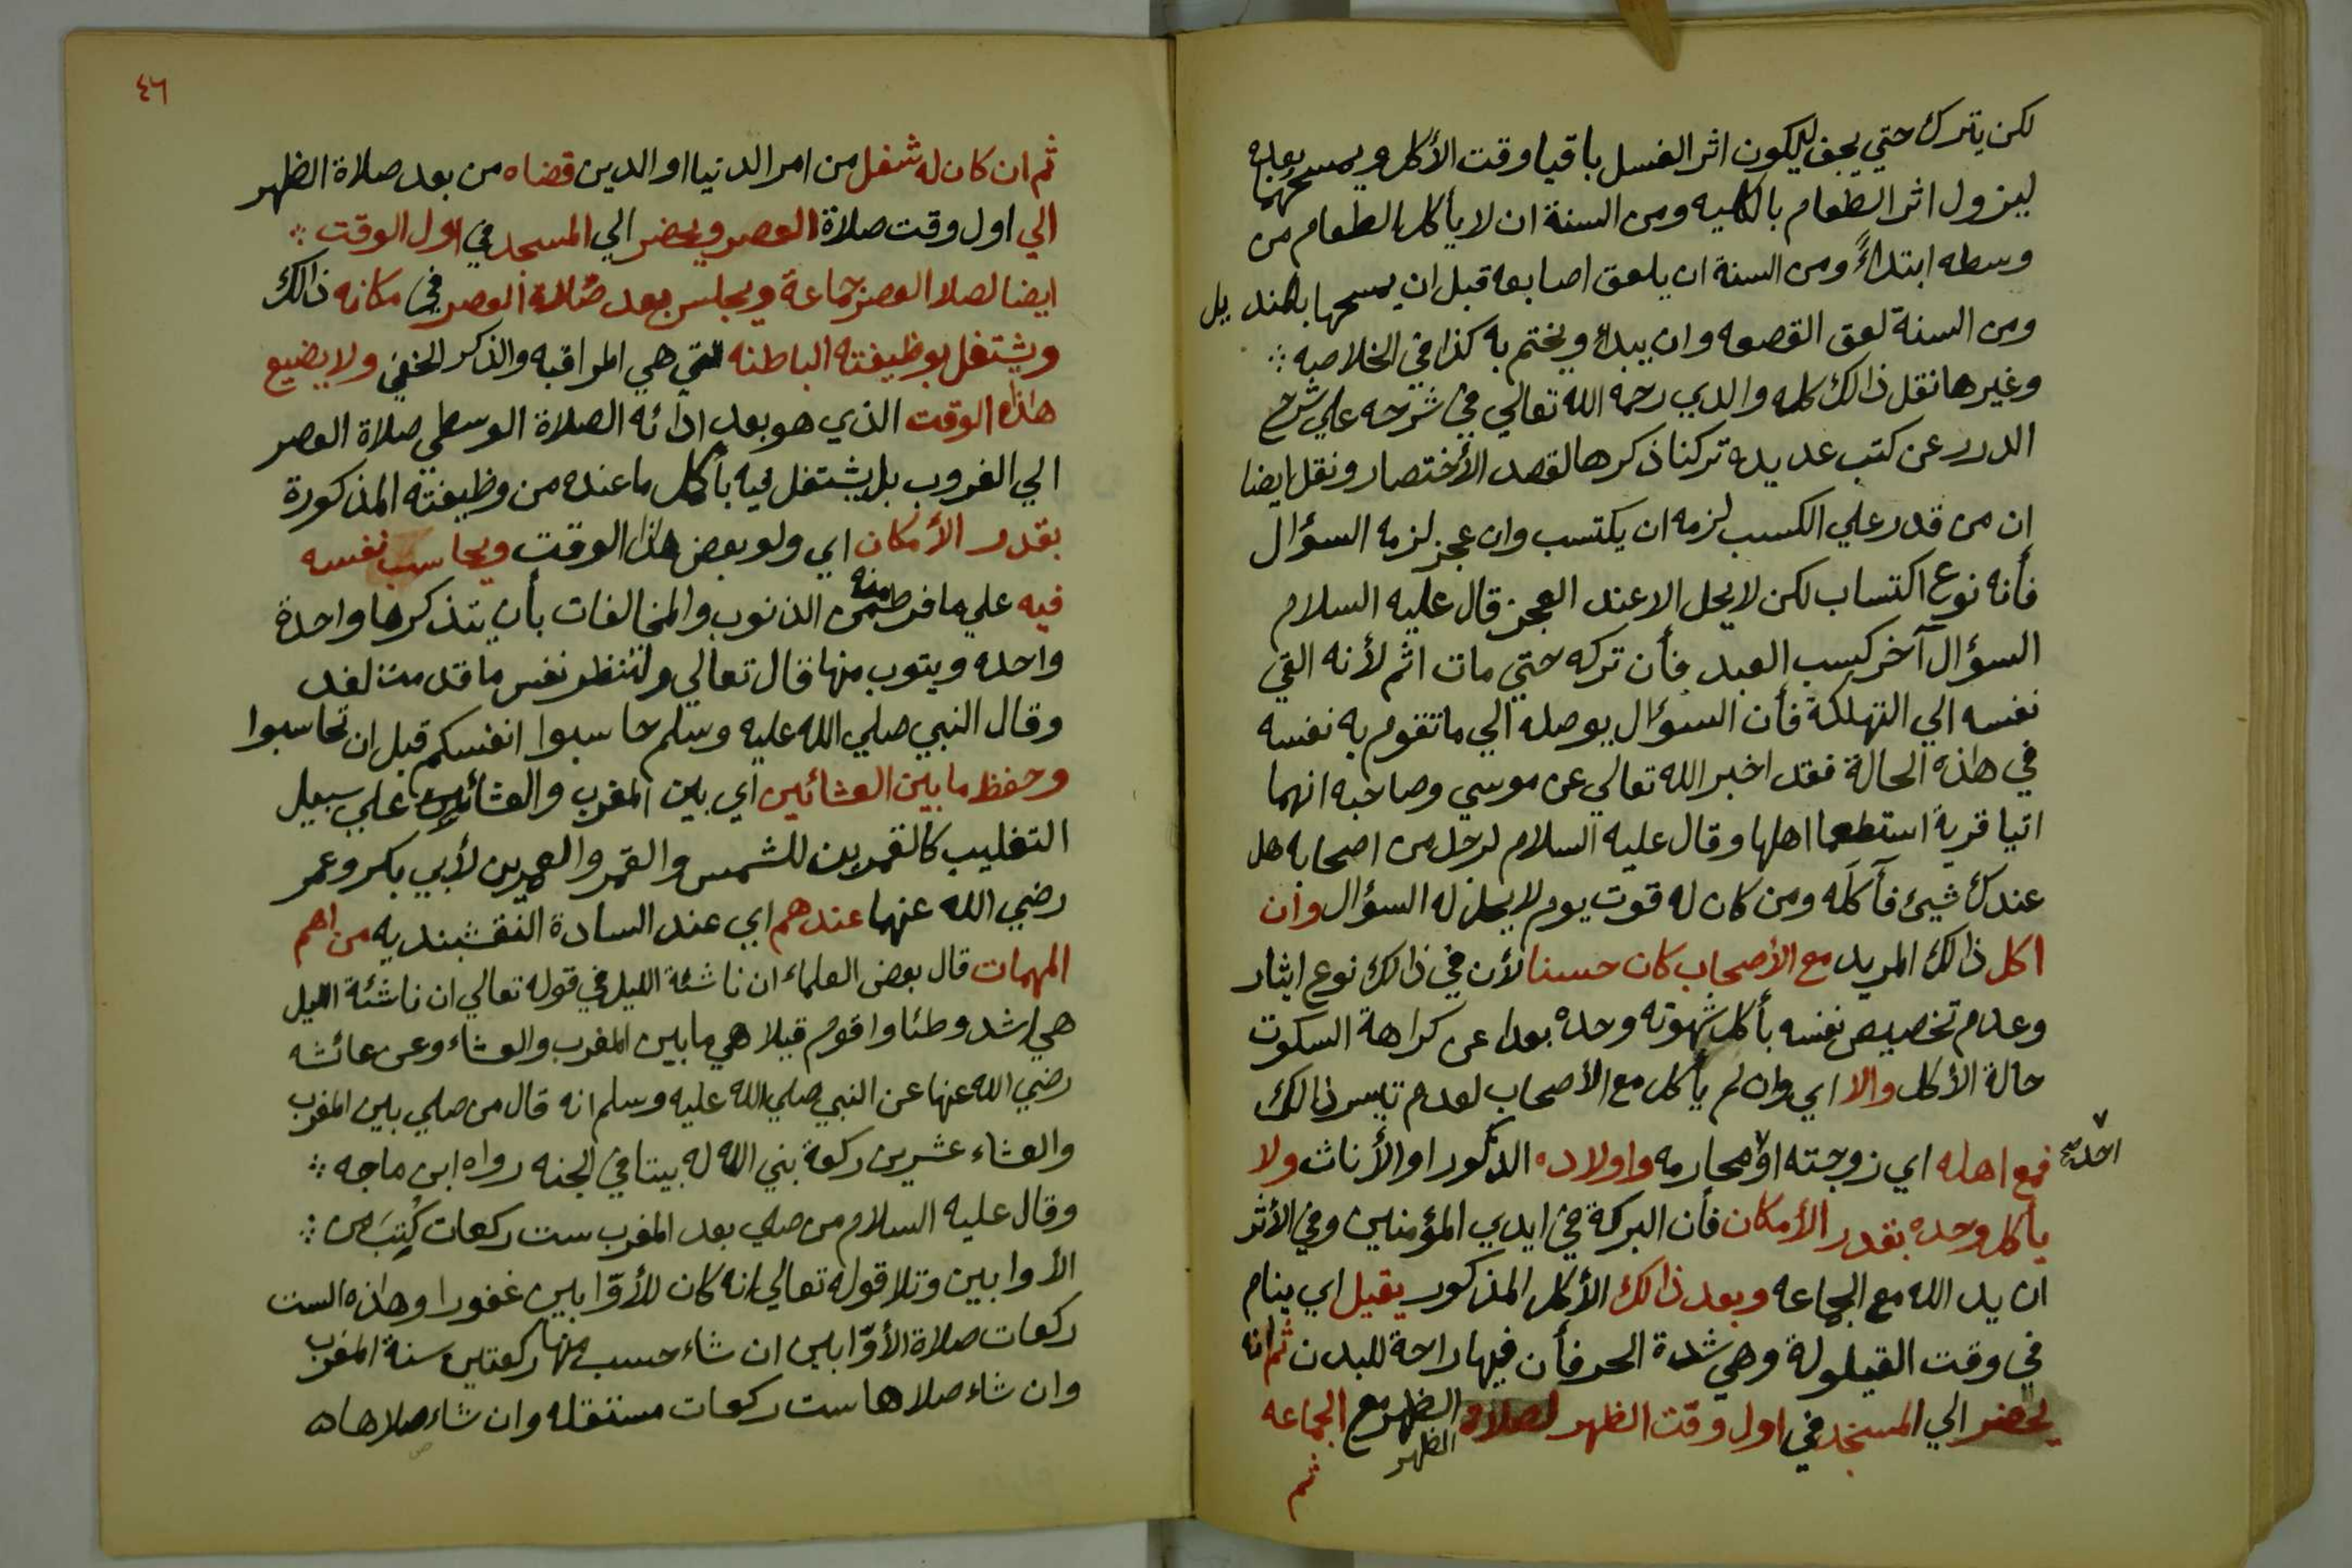 لكن يترك حتي يجف ليكون اثر الغسل باقيا وقت الأكل ويمسحهما بعده
ليزول اثر الطعام بالكليه ومن السنة ان لا يأكل الطعام من
وسطه ابتداءً ومن السنة ان يلعق اصابعه قبل ان يمسحها بالمنديل
ومن السنة لعق القصعه وان يبداء ويختم به كذا في الخلاصه ؞
وغيرها نقل ذالك كله والدي رحمه الله تعالي في شرحه علي شرح
الدرر عن كتب عديده تركنا ذكرها لقصد الأختصار ونقل ايضا
ان من قدر علي الكسب لزمه ان يكتسب وان عجز لزمه السؤال
فأنه نوع اكتساب لكن لا يحل الا عند العجز قال عليه السلام
السؤال آخر كسب العبد فأن تركه حتي مات اثم لأنه القي
نفسه الي التهلكة فأن السؤال يوصله الي ما تقوم به نفسه
في هاذه الحالة فقد اخبر الله تعالي عن موسي وصاحبه انهما
اتيا قرية استطعما اهلها وقال عليه السلام لرجل من اصحابه هل
عندك شيئ فآكله ومن كان له قوت يوم لا يحل له السؤال وان
اكل ذالك المريد مع الأصحاب كان حسنا لأن في ذالك نوع ايثار
وعدم تخصيص نفسه بأكل شهوته وحده بعدا عن كراهة السكوت
حالة الأكل والا اي وان لم يأكل مع الأصحاب لعدم تيسر ذالك
فمع اهله اي زوجته او محارمه واولاده الذكور او الأناث ولا
يأكل وحده بقدر الأمكان فأن البركة في ايدي المؤمنين وفي الأثر
ان يد الله مع الجماعه وبعد ذالك الأكل المذكور يقيل اي ينام
في وقت القيلولة وهي شدة الحر فأن فيها راحة للبدن ثم انه
يحضر الي المسجد في اول وقت الظهر لصلاة الظهر مع الجماعه
الظهر
ثم
٤٦
ثم ان كان له شغل من امر الدنيا او الدين قضاه من بعد صلاة الظهر
الي اول وقت صلاة العصر ويحضر الي المسجد في اول الوقت ؞
ايضا لصلاة العصر جماعة ويجلس بعد صلاة العصر في مكانه ذالك
ويشتغل بوظيفته الباطنه التي هي المراقبه والذكر الخفي ولا يضيع
هاذا الوقت الذي هو بعد ادائه الصلاة الوسطي صلاة العصر
الي الغروب بل يشتغل فيه بأكمل ما عنده من وظيفته المذكورة
بقدر الأمكان اي ولو بعض هاذا الوقت ويحاسب نفسه
فيه علي ما فرط منه من الذنوب والمخالفات بأن يتذكرها واحدة
واحده ويتوب منها قال تعالي ولتنظر نفس ما قدمت لغد
وقال النبي صلي الله عليه وسلم حاسبوا انفسكم قبل ان تحاسبوا
وحفظ ما بين العشائين اي بين المغرب والعشائين علي سبيل
التغليب كالقمرين للشمس والقمر والعمرين لأبي بكر وعمر
رضي الله عنهما عندهم اي عند السادة النقشبنديه من اهم
المهمات قال بعض العلماء ان ناشئة الليل في قوله تعالي ان ناشئة الليل
هي اشد وطئا واقوم قيلا هي ما بين المغرب والعشاء وعن عائشه
رضي الله عنها عن النبي صلي الله عليه وسلم انه قال من صلي بين المغرب
والعشاء عشرين ركعة بني الله له بيتا في الجنه رواه ابن ماجه ؞
وقال عليه السلام من صلي بعد المغرب ست ركعات كُتِبَ من ؞
الأوابين وتلا قوله تعالي انه كان للأوّابين غفورا وهاذه الست
ركعات صلاة الأوّابين ان شاء حسب منها ركعتين سنة المغرب
وان شاء صلاها ست ركعات مستقله وان شاء صلاها